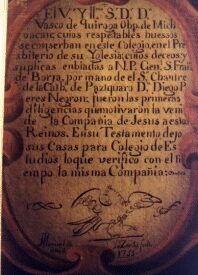 El V. Y Il.mo S. D. D.
Vasco de Quiroga Obp. de Mich
oacan; cuios respetables huesos
se conserban en este Colegio, en el Pres
biterio de su Yglesia; hizo deceos y
suplicas enbiadas a N. P. Gen. S. Fran.
de Borja, por mano de el S. Chantre
de la Catb. de Pazquaro D. Diego P
eres Negron; fueron las primeras
diligencias que motivaron la ven
da de la Compañia de Jesus a estos
Reinos. En su Testamento dejo
sus Casas para Colegio de Es
tudios loque verificó con el ti
empo la misma Compañia: